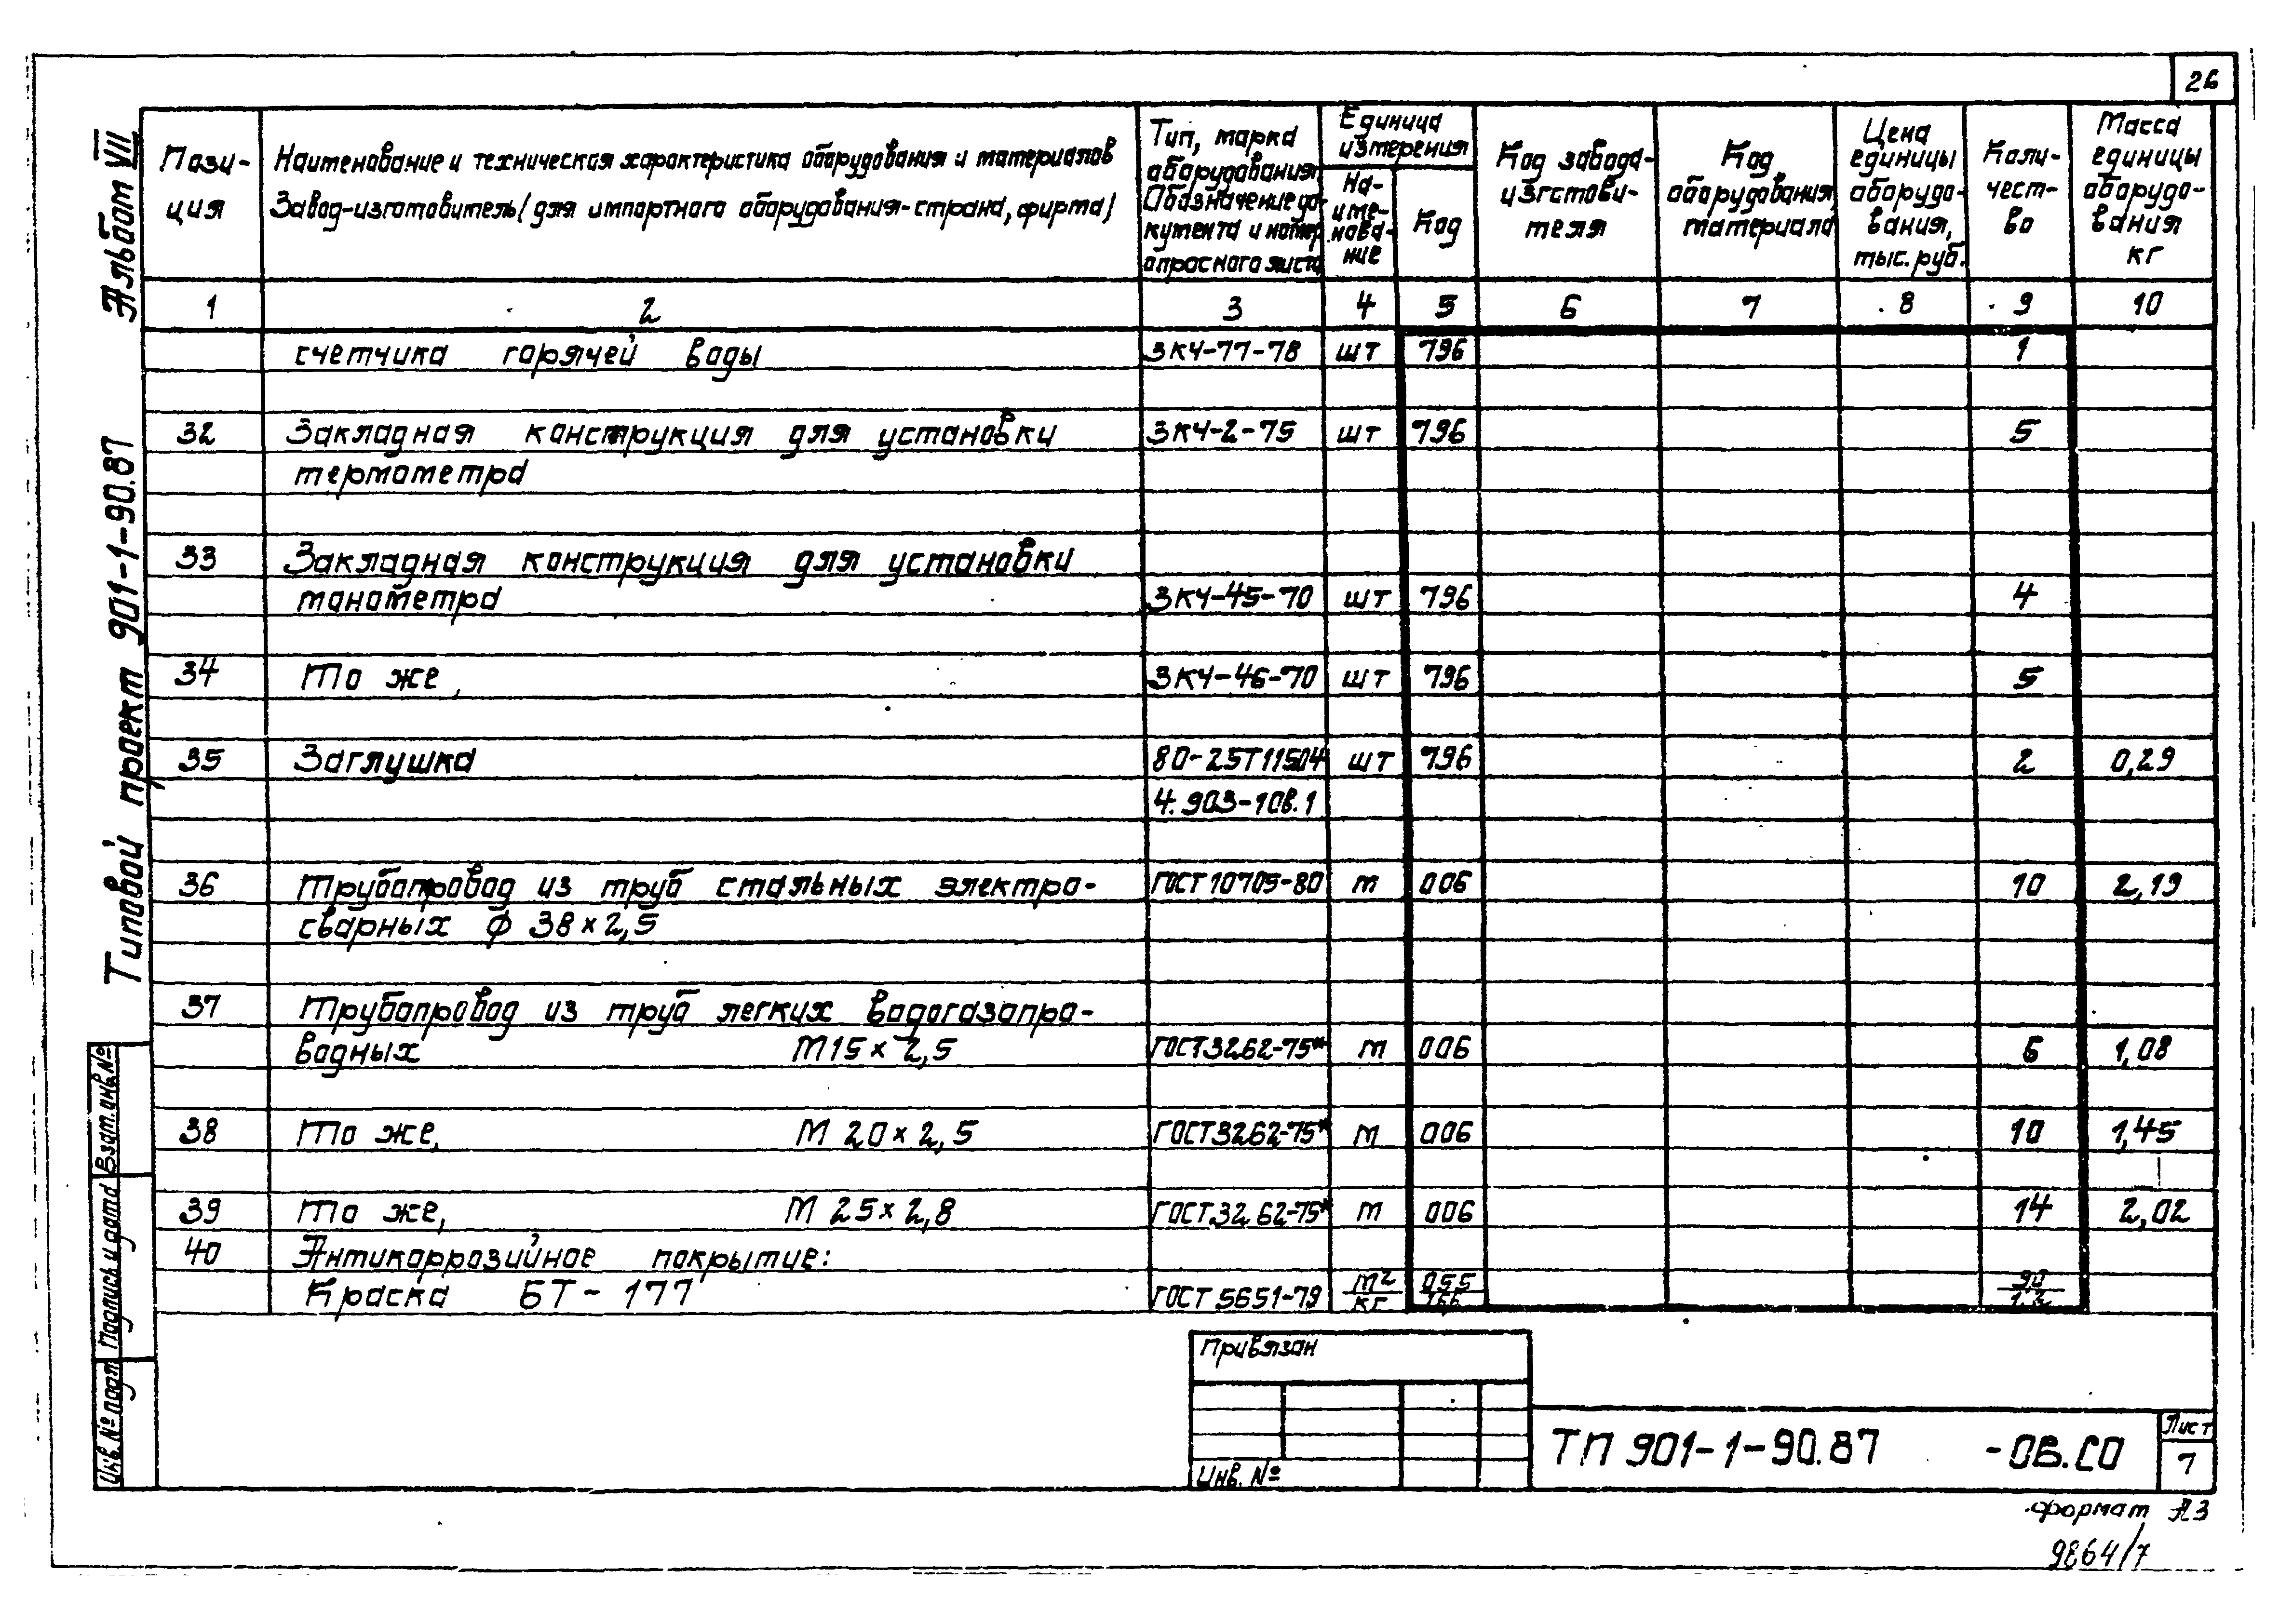 26
Альбом VII
Типовой проект 901-1-90.87
Пози-
ция
Наименование и техническая характеристика оборудования и материалов
Завод-изготовитель (для импортного оборудования-страна, фирма)
Тип, марка
оборудования.
Обозначение до-
кумента и номер
опросного листа
Единица
измерения
На-
име-
нова-
ние
Код
Код завода-
изготови-
теля
Код
оборудования,
материала
Цена
единицы
оборудо-
вания,
тыс. руб.
Коли-
чест-
во
Масса
единицы
оборудо-
вания
кг
1 2 3 4 5 6 7 8 9 10
счетчика горячей воды ЗК4-77-78 шт 796 1
32 Закладная конструкция для установки ЗК4-2-75 шт 796 5
термометра
33 Закладная конструкция для установки
манометра ЗК4-45-70 шт 796 4
34 То же, ЗК4-46-70 шт 796 5
35 Заглушка 80-25Т11504 шт 796 2 0,29
4.903-10в.1
36 Трубопровод из труб стальных электро- ГОСТ 10705-80 м 006 10 2,19
сварных ф 38×2,5
37 Трубопровод из труб легких водогазопро-
водных М15×2,5 ГОСТ 3262-75* м 006 6 1,08
38 То же, М 20×2,5 ГОСТ 3262-75* м 006 10 1,45
39 То же, М 25×2,8 ГОСТ 3262-75* м 006 14 2,02
40 Антикоррозийное покрытие:
Краска БТ-177 ГОСТ 5651-79 м²/кг 055/166
Привязан
Инв. №
ТП 901-1-90.87 -ОВ.СО
Лист
7
Взам. инв. №
Подпись и дата
Инв. № подл
формат А3
9864/7